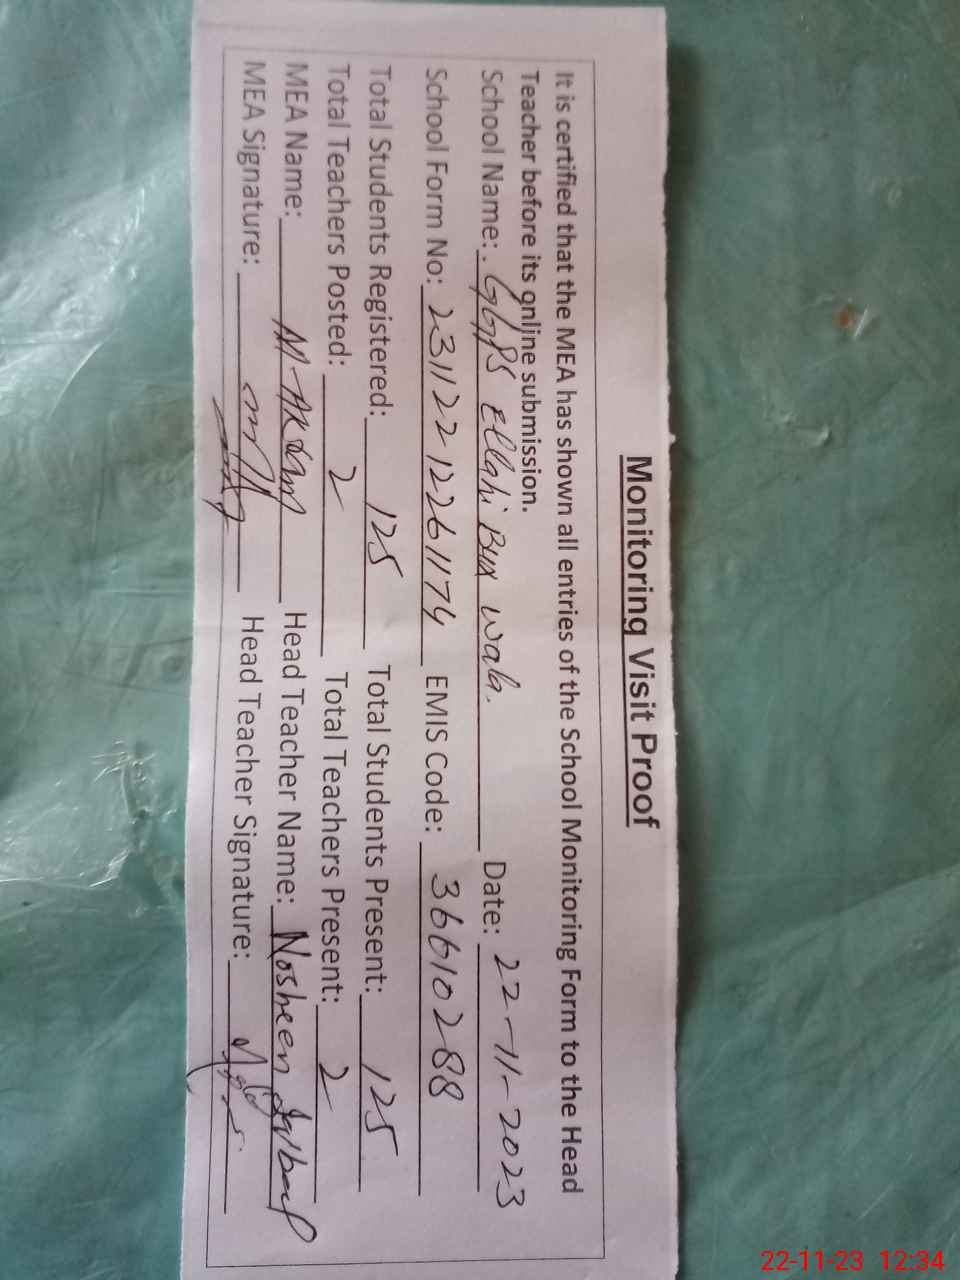 Monitoring Visit Proof
It is certified that the MEA has shown all entries of the School Monitoring Form to the Head
Teacher before its online submission.
School Name: GGPS Ellahi Bux Wala. Date: 22-11-2023
School Form No: 23112212261174 EMIS Code: 36610288
Total Students Registered: 125 Total Students Present: 125
Total Teachers Posted: 2 Total Teachers Present: 2
MEA Name: M Akram Head Teacher Name: Nosheen Iqbal
MEA Signature: Head Teacher Signature:
22-11-23 12:34